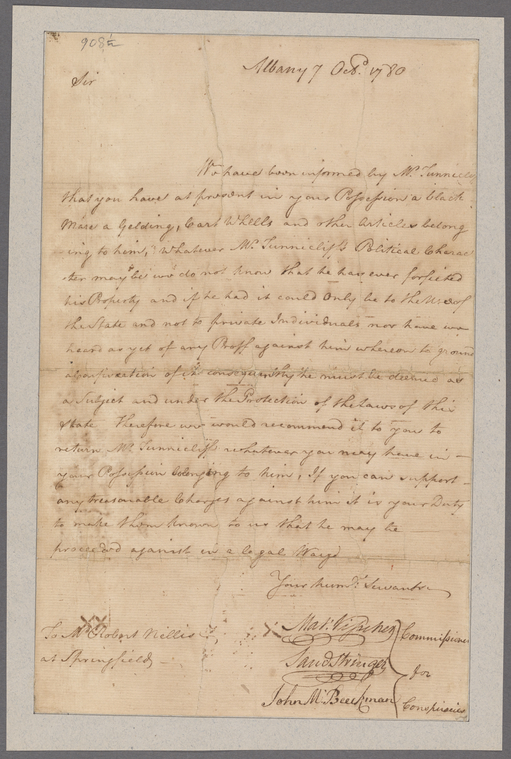 908½
Albany 7 Octr. 1780
Sir
We have been informed by Mr. Tunnicliff
that you have at present in your Possession a black
Mare a Gelding, Cart Wheels and other Articles belong
ing to him, Whatever Mr. Tunnicliffs Political Charac
ter may be we do not know that he has ever forfeited
his Property and if he had it could only be to the Use of
the State and not to private Individuals nor have we
heard as yet of any Proff against him whereon to ground
of consequently he must be deemed as
a Subject and under the Protection of the Laws of this
State Therefore we would recommend it to you to
return Mr. Tunnicliff whatever you may have in
your Possession belonging to him, If you can support
any treasonable Charges against him it is your Duty
to make them known to us that he may be
proceeded against in a legal Way
Your humb. Servants
To Mr. Robert Nellis
at Springfield
Mat. Visscher
Sam Stringer
John M. Beeckman
Commissioners
for
Conspiracies